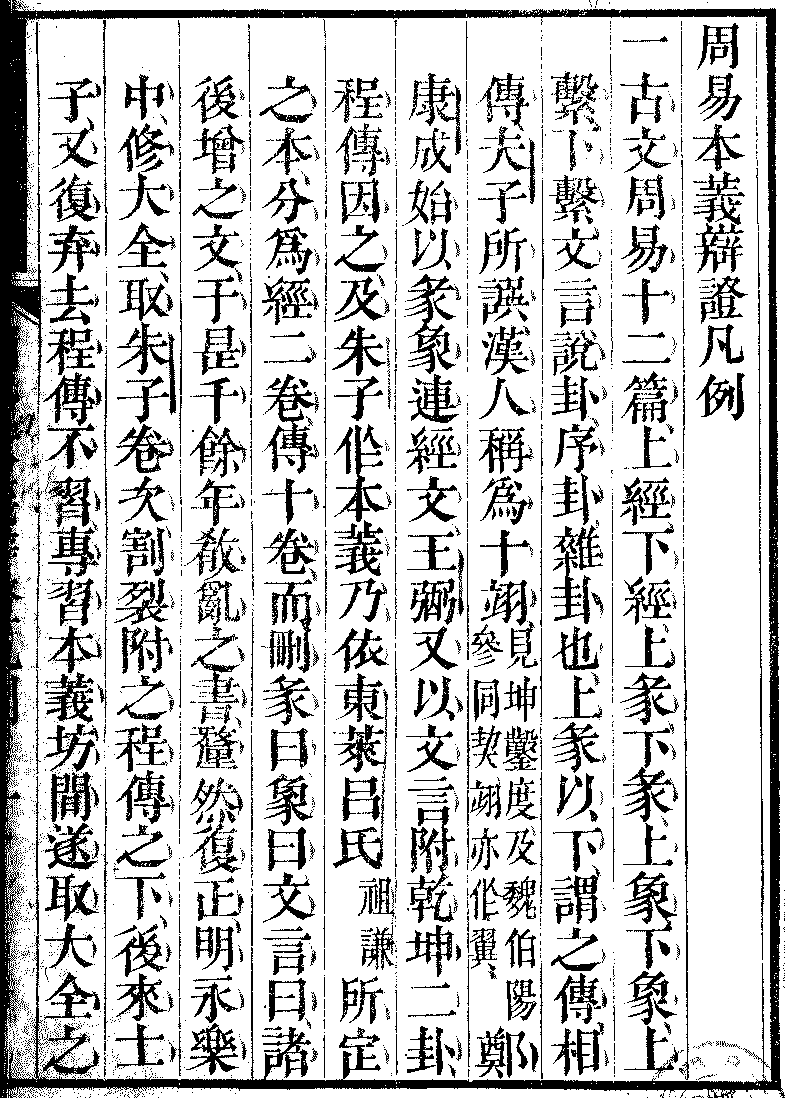 周易本義辯證凡例
一古文周易十二篇上經下經上彖下彖上象下象上
繫下繫文言說卦序卦雜卦也上彖以下謂之傳相
傳夫子所譔漢人稱爲十翊見坤鑿度及魏伯陽參同契翊亦作翼鄭
康成始以彖象連經文王弼又以文言附乾坤二卦
程傳因之及朱子作本義乃依東萊呂氏祖謙所定
之本分爲經二卷傳十卷而刪彖曰象曰文言曰諸
後增之文于是千餘年殽亂之書釐然復正明永樂
中修大全取朱子卷次割裂附之程傳之下後來士
子又復弃去程傳不習專習本義坊間遂取大全之